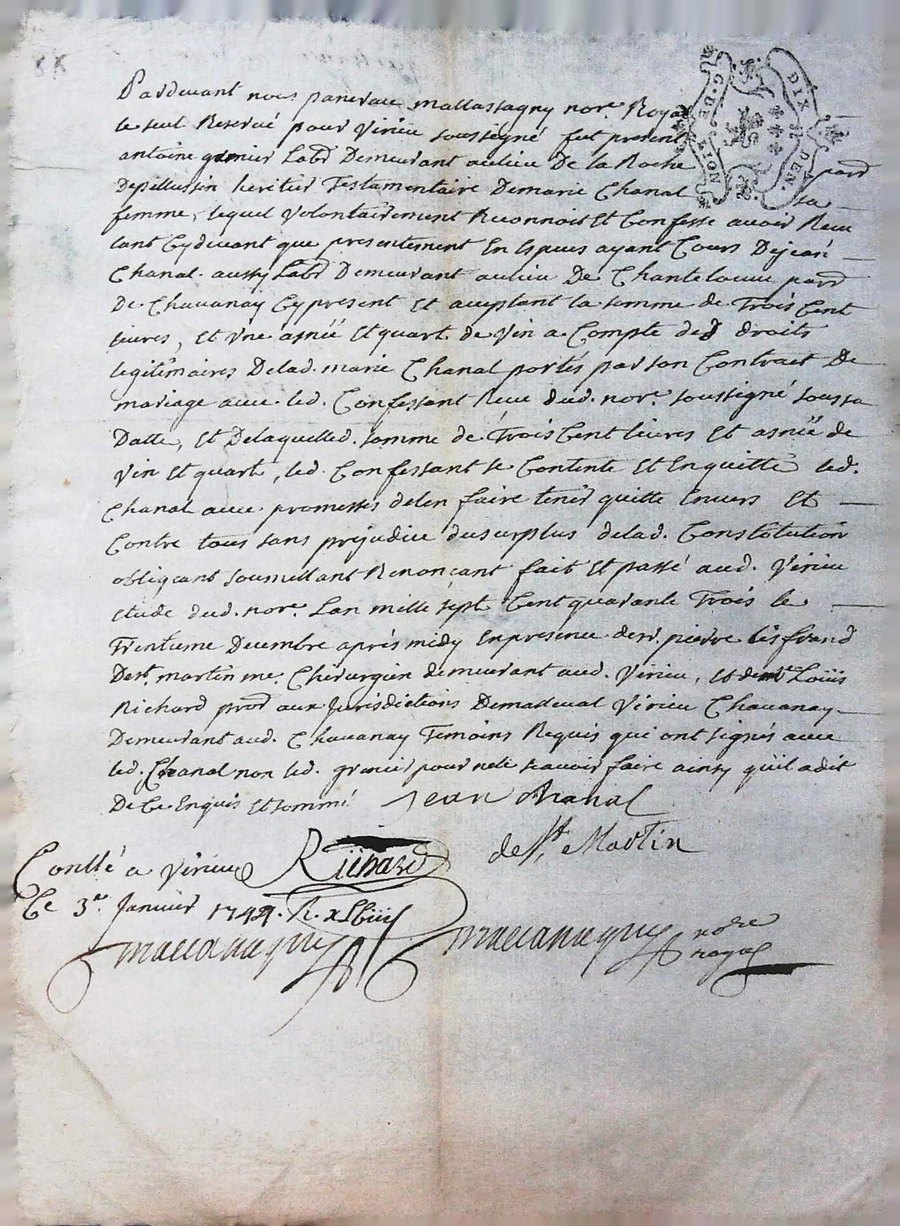 G. DE LION
DIX DEN.
Pardevant nous pancrace mallassagny nore. Royal
le seul Reservé pour Virieu soussigné fut present
antoine grenier Labr Demeurant au lieu De la Roche parr
Depellussin heritier Testamentaire De marie Chanal sa
femme, lequel Volontairement Reconnoit Et Confesse avoir Receu
tant Cydevant que presentement En Especes ayant Cours De jean
Chanal aussy Labr Demeurant au lieu De Chantelouve parr
De Chavanay Cy present Et acceptant la somme de Trois Cent
livres, Et Une asnéé Et quart de Vin a Compte des droits
legitimaires De lad. marie Chanal portés par son Contract De
mariage avec led. Confessant Receu dud. nore. soussigné sous sa
Datte, Et De laquelle d. somme de Trois Cent livres Et asnéé de
Vin Et quart, led. Confessant se Contente Et En quitte led.
Chanal avec promesses de len faire tenir quitte Envers Et
Contre tous sans prejudice du surplus de lad. Constitution
obligeant soumettant Renonçant fait Et passé aud. Virieu
etude dud. nore. Lan mille sept Cent quarante Trois le
Trentieme Decembre après midy En presence de sr. pierre
De st. martin me. Chirurgien demeurant aud. Virieu, Et de Louis
Richard procr aux Jurisdictions De maleval Virieu Chavanay
Demeurant aud. Chavanay Temoins Requis qui ont signés avec
led. Chanal non led. grenier pour ne le scavoir faire ainsy quil a dit
De Ce Enquis Et sommé
Jean Chanal
Richard
de St. Martin
Conllé a Virieu
Ce 3e. Janvier 1744. R.
mallassagny
mallassagny nore
royal